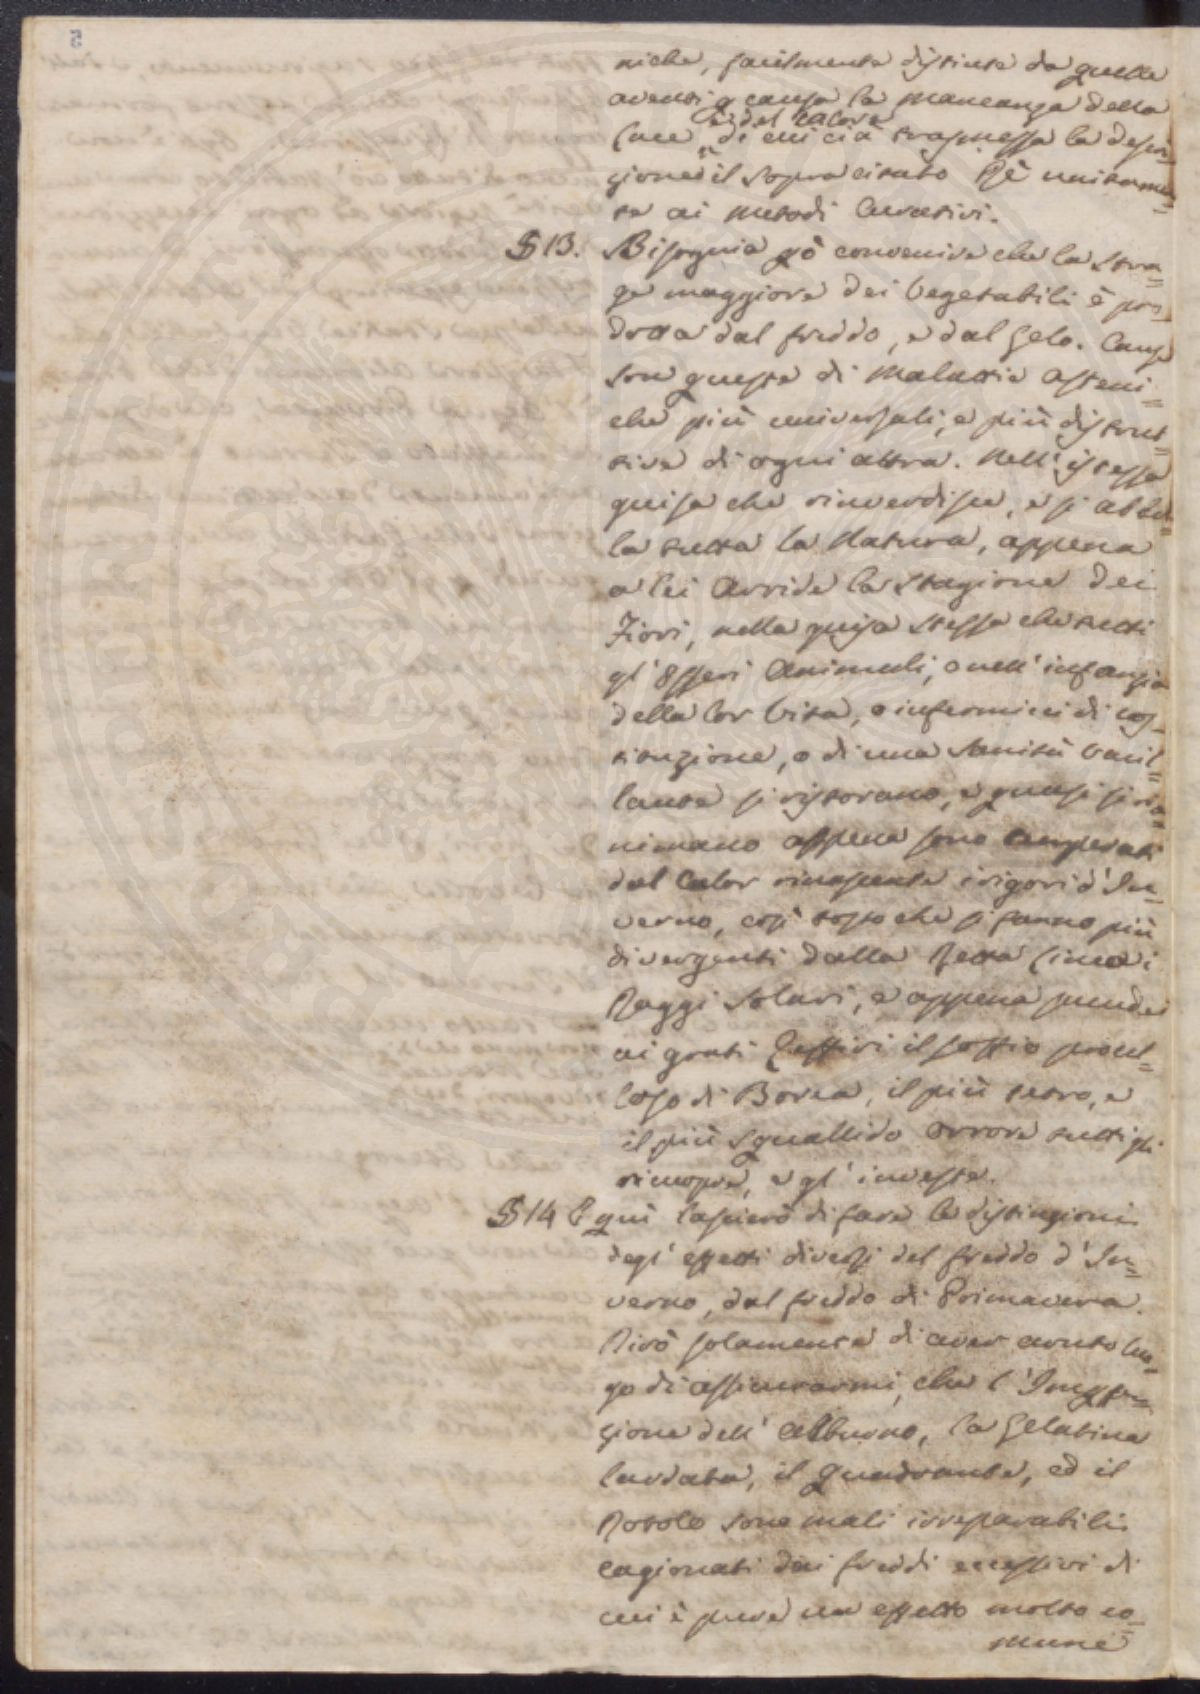 niche, facilmente distinte da quelle
aventi p causa la mancanza della
e del calore
luce di cui ci à trasmessa la descri=
zione il sopra citato Rè unitamen=
te ai metodi curativi.
§ 13. Bisognia pò convenire che la stra=
ge maggiore dei Vegetabili è pro=
dotta dal freddo, e dal Gelo. Cause
son queste di Malattie asteni=
che più universali, e più distrut=
tive di ogni altra. Nell' istessa
guisa che rinverdisce, e si abbel=
la tutta la Natura, appena
a lei arride la Stagione dei
Fiori, nella guisa stessa che tutti
gl' Esseri Animali, o nell' infanzia
della lor Vita, o infermicci di cos=
tituzione, o di una Sanità vacil=
lante si ristorano, e quasi si ria=
nimano appena sono temperati
dal Calor rinascente i rigori d' In=
verno, così tosto che si fanno più
divergenti dalla Retta Linea i
Raggi Solari, e appena succede
ai grati Zeffiri il soffio procel=
loso di Borea, il più tetro, e
il più squallido orrore tutti gli
ricuopre, e gl' investe.
§ 14 E quì lascierò di fare le distinzioni
degl' effetti diversi del freddo d' In=
verno, dal freddo di Primavera.
Dirò solamente di aver avuto luo=
go di assicurarmi, che l'
zione dell' alburno, la Gelatina
lardata, il Quadrante, ed il
Rotolo sono mali irreparabili
cagionati dai freddi eccessivi di
cui è pure un effetto molto co=
mune